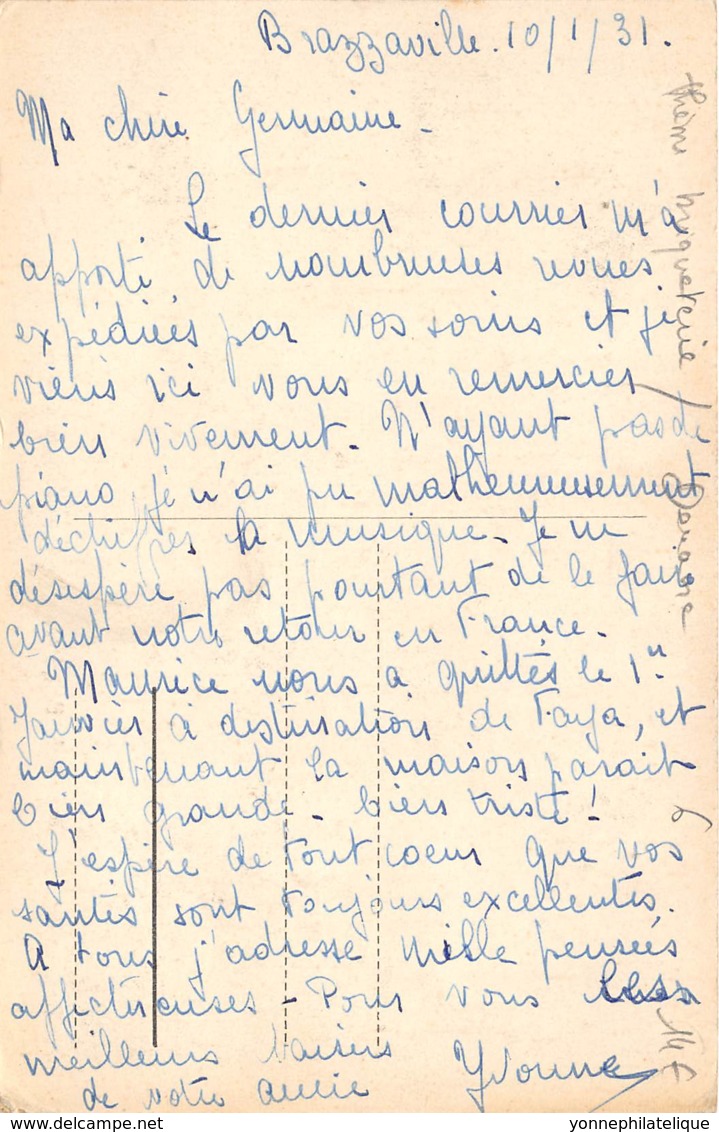 Brazzaville. 10/1/31.
Ma chère Germaine.
Le dernier courrier m'a
apporté de nombreuses revues
expédiées par vos soins et je
viens ici vous en remercier
bien vivement. N'ayant pas de
piano, je n'ai pu malheureusement
déchiffrer la musique. Je ne
désespère pas pourtant de le faire
avant notre retour en France.
Maurice nous a quittés le 1er
Janvier à destination de Faya, et
maintenant la maison parait
bien grande. bien triste!
J'espère de tout coeur que vos
santés sont toujours excellentes.
A tous j'adresse mille pensées
affectueuses - Pour vous les
meilleurs baisers
de votre amie Yvonne
6
14 F
yonnephilatelique